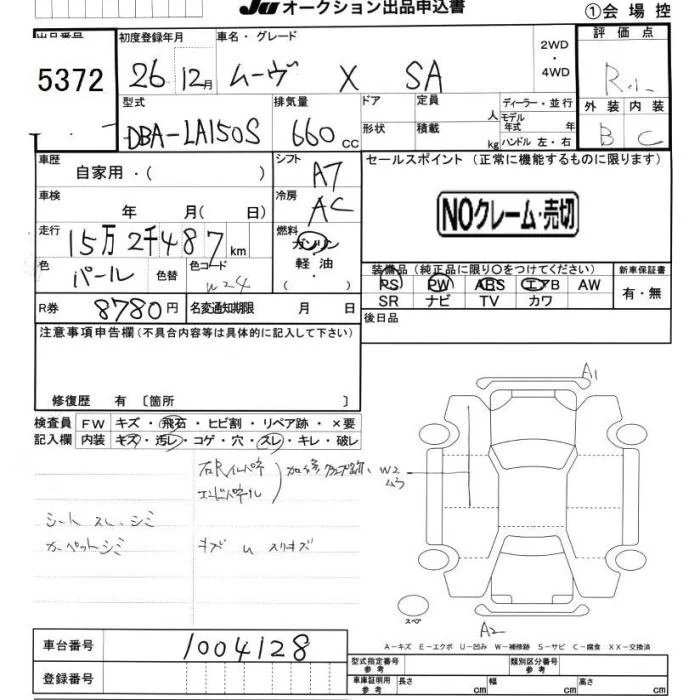 JU オークション出品申込書
①会場控
出品番号 初度登録年月 車名・グレード 2WD・4WD 評価点
5372 26 12月 ムーヴ X SA R.1.
型式 排気量 ドア 定員 人 ディーラー・並行 外装 内装
DBA-LA150S 660cc 形状 積載 kg モデル年式 年 B C
ハンドル 左・右
車歴 自家用・( ) シフト A7 セールスポイント(正常に機能するものに限ります)
車検 年 月( 日) 冷房 AC NOクレーム・売切
走行 15万2千487km 燃料 ガソリン
色 パール 色替 色コード W24 軽油・( )
装備品(純正品に限り○をつけてください) 新車保証書
PS PW ABS エアB AW 有・無
SR ナビ TV カワ
R券 8780円 名変通知期限 月 日 後日品
注意事項申告欄(不具合内容等は具体的に記入して下さい)
修復歴 有 〔箇所 〕
検査員記入欄 FW キズ・飛石・ヒビ割・リペア跡・×要
内装 キズ・汚レ・コゲ・穴・スレ・キレ・破レ
A1
エンドパネル W2 ムラ
シート スレ、シミ
カーペットシミ キズ U スリキズ
スペア
A2
A-キズ E-エクボ U-凹み W-補修跡 S-サビ C-腐食 XX-交換済
車台番号 1004128
型式指定番号 参考 類別区分番号 参考
登録番号 車庫証明用 参考 長さ cm 幅 cm 高さ cm